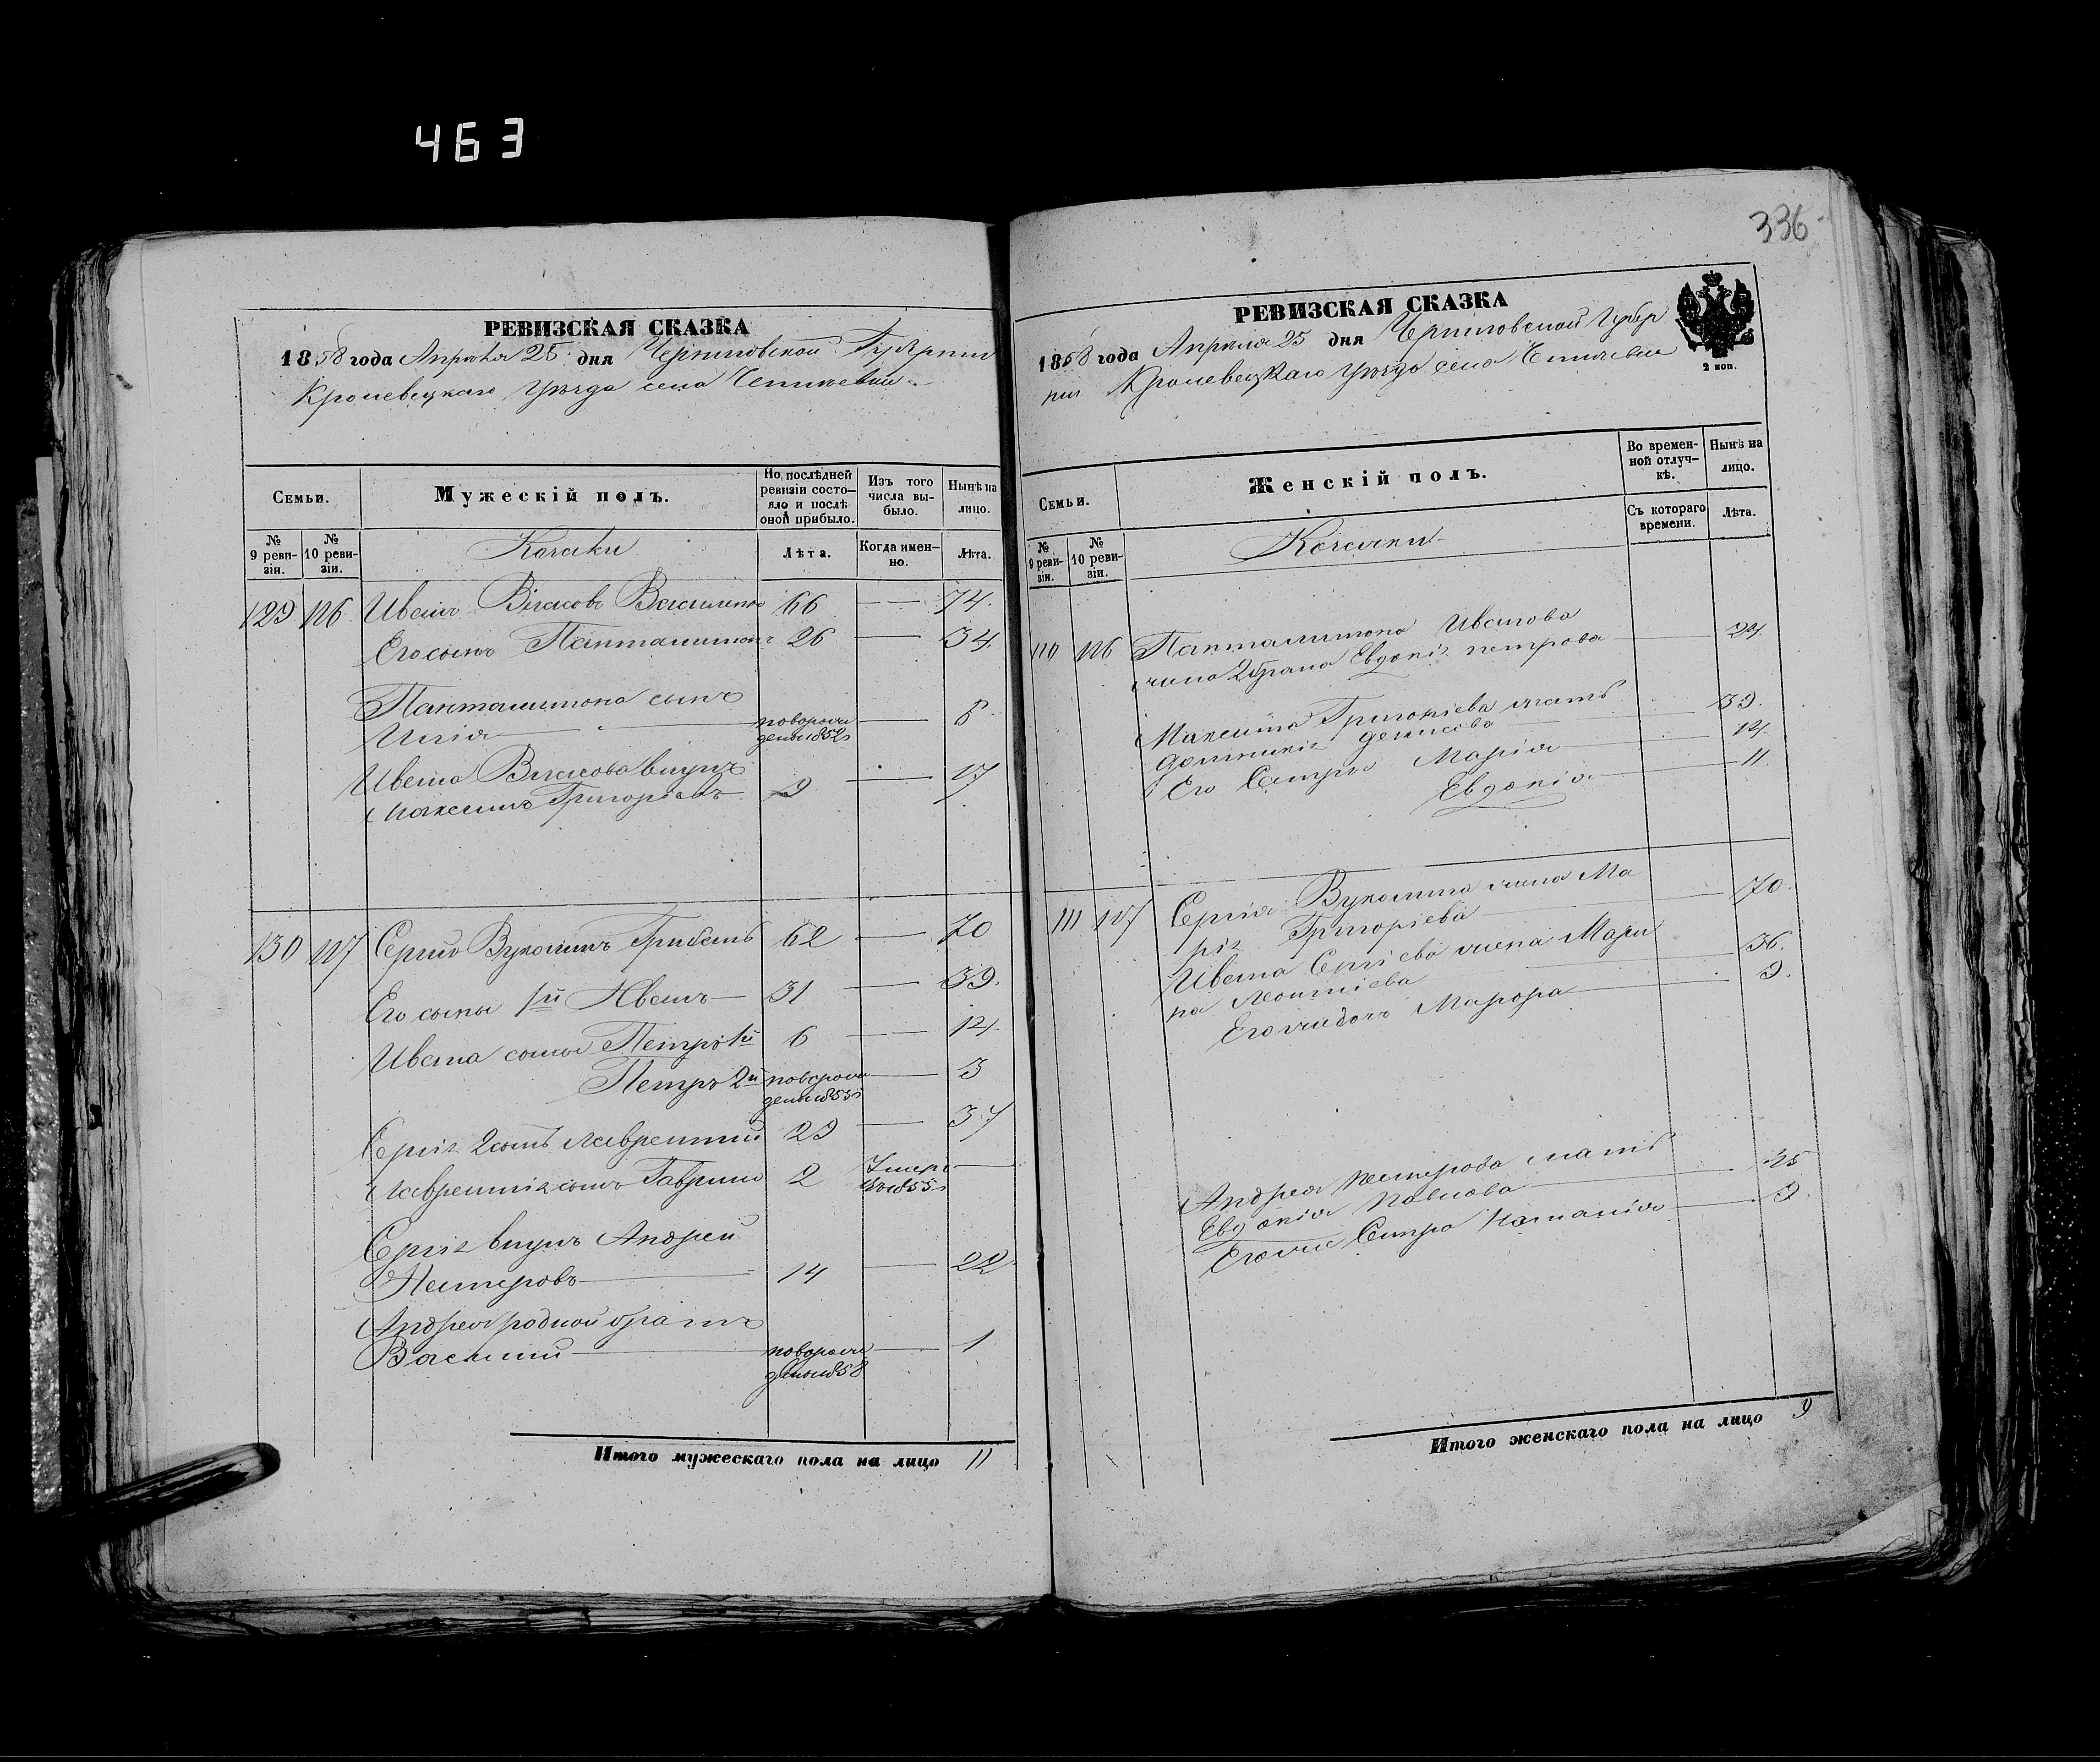 463
336
РЕВИЗСКАЯ СКАЗКА
1858 года Апреля 25 дня Черниговской Губернии
Кролевецкаго уезда села
Семьи.
Мужескій полъ.
По послѣдней ревизіи состо-
яло и послѣ оной прибыло.
Изъ того числа вы-
было.
Нынѣ на лицо.
№ 9 реви-
зіи.
№ 10 реви-
зіи.
Козаки
Лѣта.
Когда имен-
но.
Лѣта.
129 126 Иванъ Власовъ 66 — 74.
Его сынъ Пантелимонъ 26 — 34.
Пантелимона сынъ
Илія новорож — 8
денъ 1852
Ивана Власова внукъ
Максимъ Григоріевъ 9 — 17
130 127 Сергій Вуколинъ 62 — 70
Его сыны 1й Иванъ — 31 — 39.
Ивана сыны Петръ 1й 6 — 14.
Петръ 2й новорож — 3
денъ 1855
Сергія 2 сынъ Лаврентій 29 — 37
Лаврентія сынъ Гаврило 2 Умеръ —
1855
Сергія внукъ Андрей
Нестеровъ — 14 — 22
Андрея родной братъ
Василий — новорож — 1
денъ 1858
Итого мужескаго пола на лицо 11
РЕВИЗСКАЯ СКАЗКА
1858 года Апреля 25 дня Черниговской Губер
нии Кролевецкаго уезда села
2 коп.
Семьи.
Женскій полъ.
Во времен-
ной отлуч-
кѣ.
Нынѣ на
лицо.
№
9 реви-
зіи.
№
10 реви-
зіи.
Козачки
Съ котораго
времени.
Лѣта.
110 126 Пантелимона Иванова
жена 2 брака Евдокія Петрова — 24
Максима Григоріева мать
Денисова — 39.
Его Сестры Марія — 14
Евдокія — 11.
111 127 Сергія Вуколина жена Ма
рія Григоріева — 70.
Ивана Сергіева жена Мари
на Леонтіева — 36.
Его дочь — 9.
Андрея Нестерова мать
Евдокія Павлова — 45
Сестра Наталія — 9.
Итого женскаго пола на лицо 9